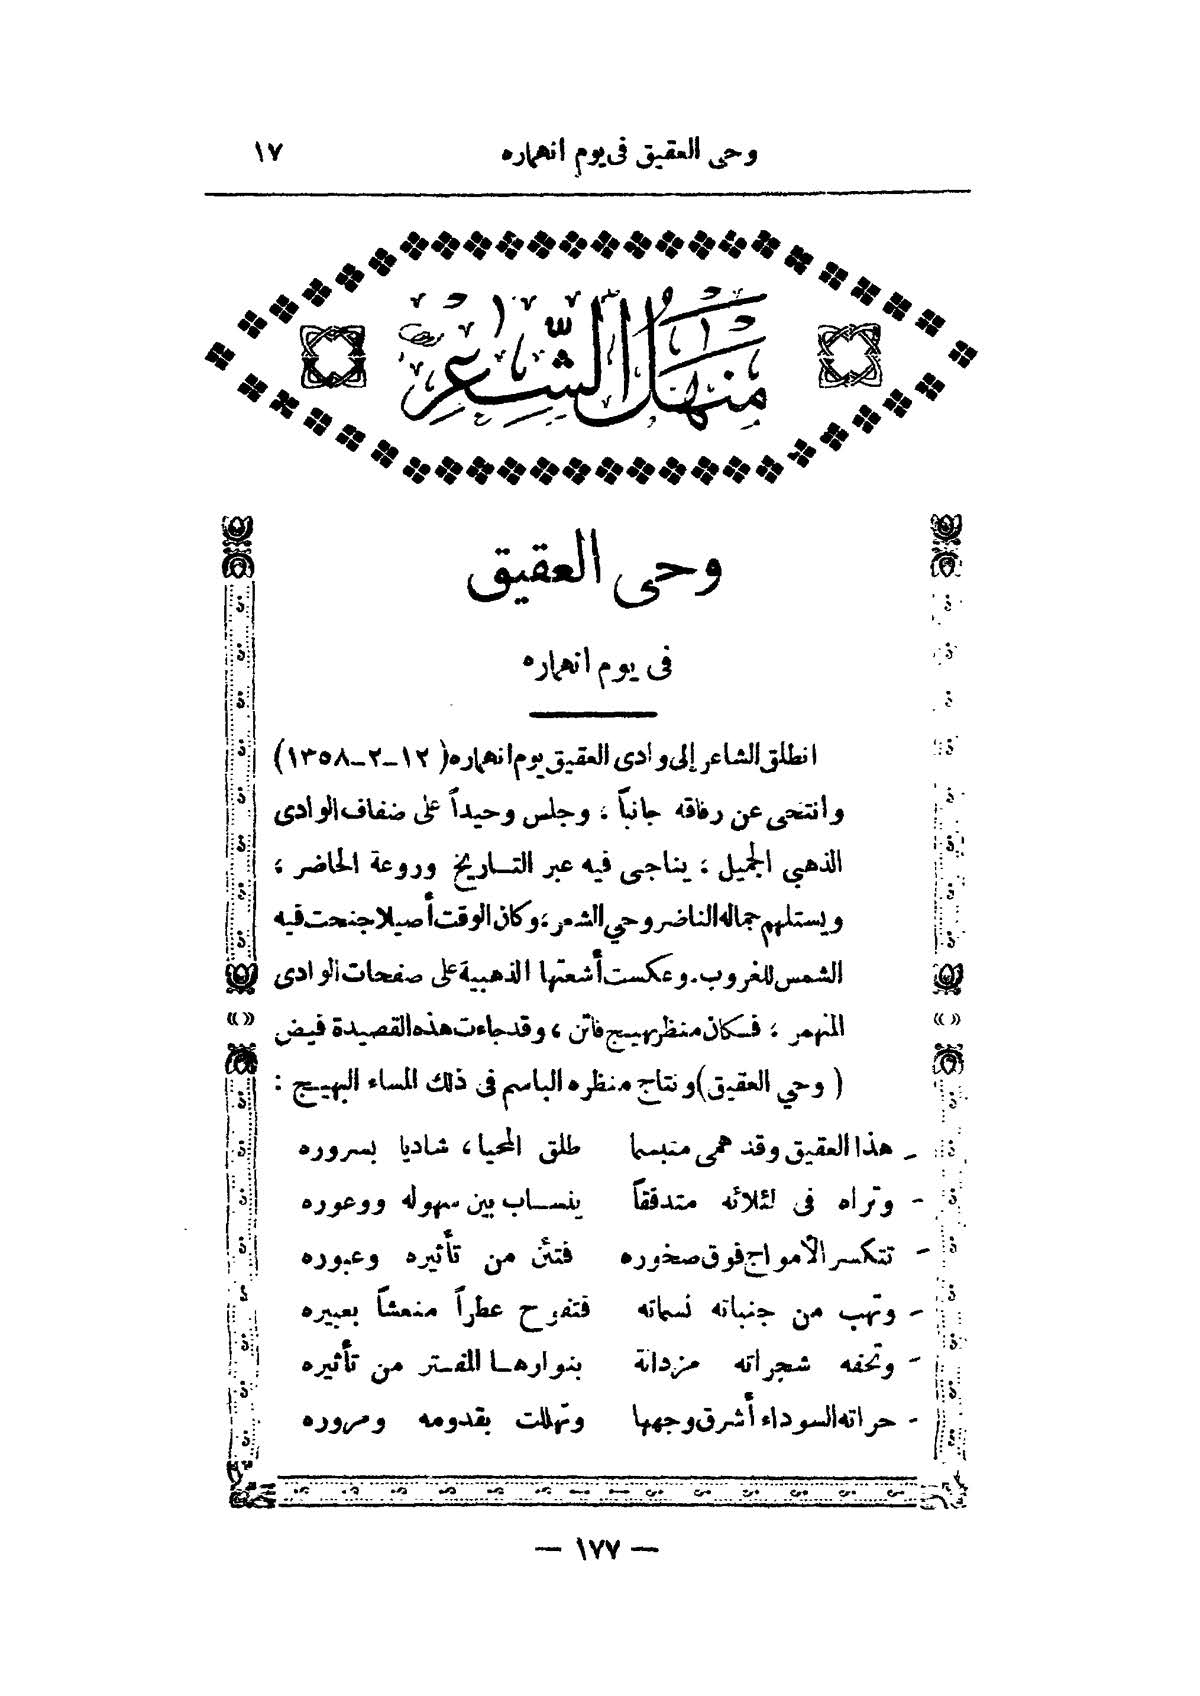 وحى العقيق فى يوم انهماره ١٧
منهل الشعر
وحى العقيق
فى يوم انهماره
انطلق الشاعر إلى وادى العقيق يوم انهماره ( ١٢ــ٢ــ١٣٥٨)
وانتحى عن رفاقه جانباً ، وجلس وحيداً على ضفاف الوادى
الذهبي الجميل ، يناجى فيه عبر التــاريخ وروعة الحاضر ،
ويستلهم جماله الناضر وحي الشعر ، وكان الوقت أصيلا جنحت فيه
الشمس للغروب . وعكست أشعتها الذهبية على صفحات الوادى
المنهمر ، فـكان منظر بهيـج فاتن ، وقد جاءت هذه القصيدة فيض
( وحي العقيق ) ونتاج منظره الباسم فى ذلك المساء البهيـج :
ــ هذا العقيق وقد همى متبسما طلق المحيا ، شاديا بسروره
ــ وتراه فى لئلائه متدفقاً ينســاب بين سهوله ووعوره
ــ تتكسر الأمواج فوق صخوره فتئن من تأثيره وعبوره
ــ وتهب من جنباته نسماته فتفوح عطراً منعشاً بعبيره
ــ وتحفه شجراته مزدانة بنوارهــا المفـتر من تأثيره
ــ حراته السوداء أشرق وجهها وتهللت بقدومه ومروره
— ١٧٧ —